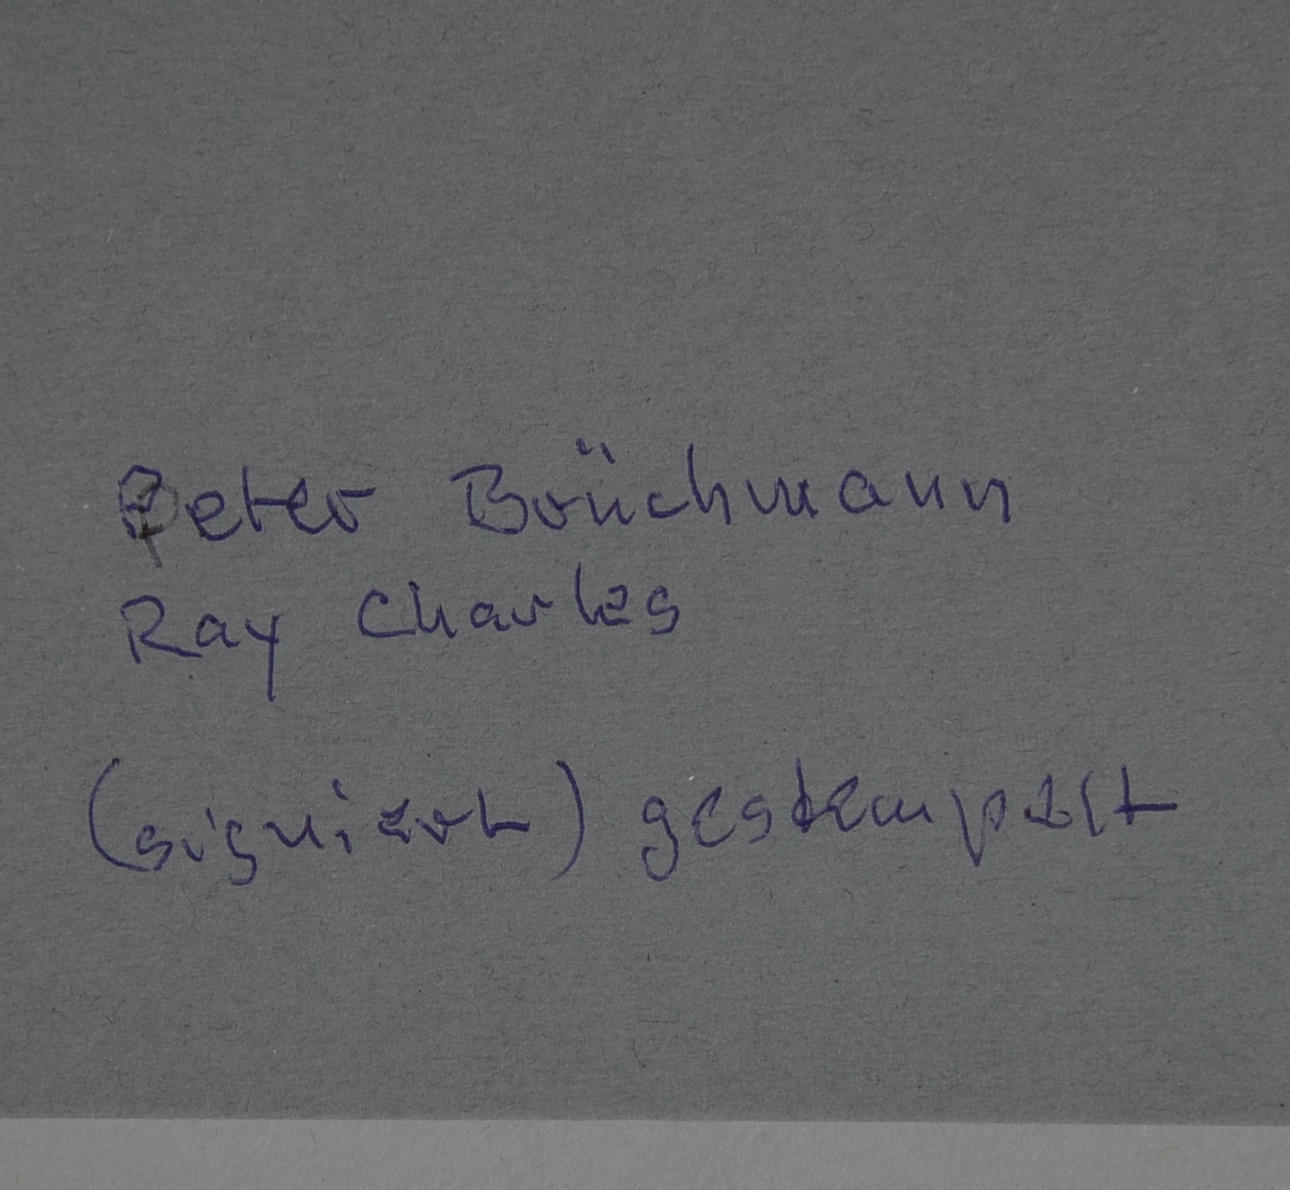 Peter Brüchmann
Ray Charles
(signiert) gestempelt